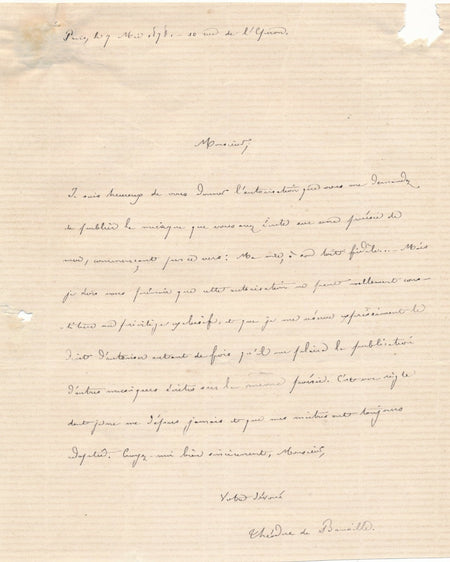 Paris, le 7 Mai 1878. — 10 rue de l'Eperon.
Monsieur,
Je suis heureux de vous donner l'autorisation que vous me demandez
de publier la musique que vous avez écrite sur une poésie de
moi, commençant par ce vers : Ma mie, à son toit fidèle... Mais
je dois vous prévenir que cette autorisation ne peut nullement cons-
tituer un privilège exclusif, et que je me réserve expressément le
droit d'autoriser autant de fois qu'il me plaira la publication
d'autres musiques écrites sur la même poésie. C'est une règle
dont je ne me dépars jamais et que mes maîtres ont toujours
adoptée. Croyez-moi bien sincèrement, Monsieur,
Votre dévoué
Théodore de Banville.